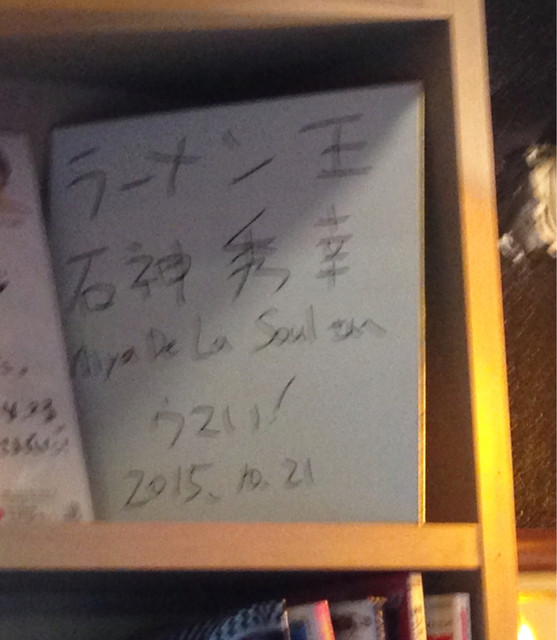 ラーメン王
石神秀幸
Miya De La Soul さん
うまい!
2015.10.21
4.23